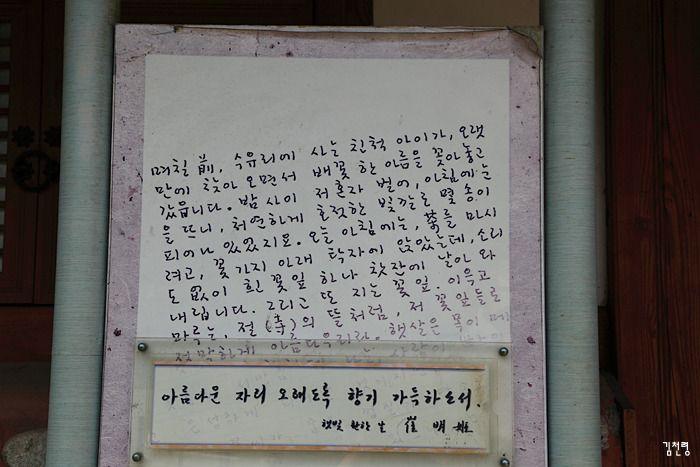 며칠 前, 수유리에 사는 친척 아이가, 오랫
만에 찾아 오면서 배꽃 한 아름을 꽂아 놓고
갔읍니다. 밤 사이 저 혼자 벌어, 아침에 눈
을 뜨니, 처연하게 호젓한 빛깔로 몇 송이
피어나 있었지요. 오늘 아침에는, 茶를 마시
려고, 꽃가지 아래 탁자에 앉았는데, 소리
도 없이 흰 꽃잎 하나 찻잔에 날아 와
내립니다. 그리고 또 지는 꽃잎. 이윽고
마루는, 절(寺)의 뜰처럼, 저 꽃잎들로
적막하게 아름다우리라. 햇살은 목이 메
아름다운 자리 오래도록 향기 가득하소서.
햇빛 환한 날 崔 明
김천령